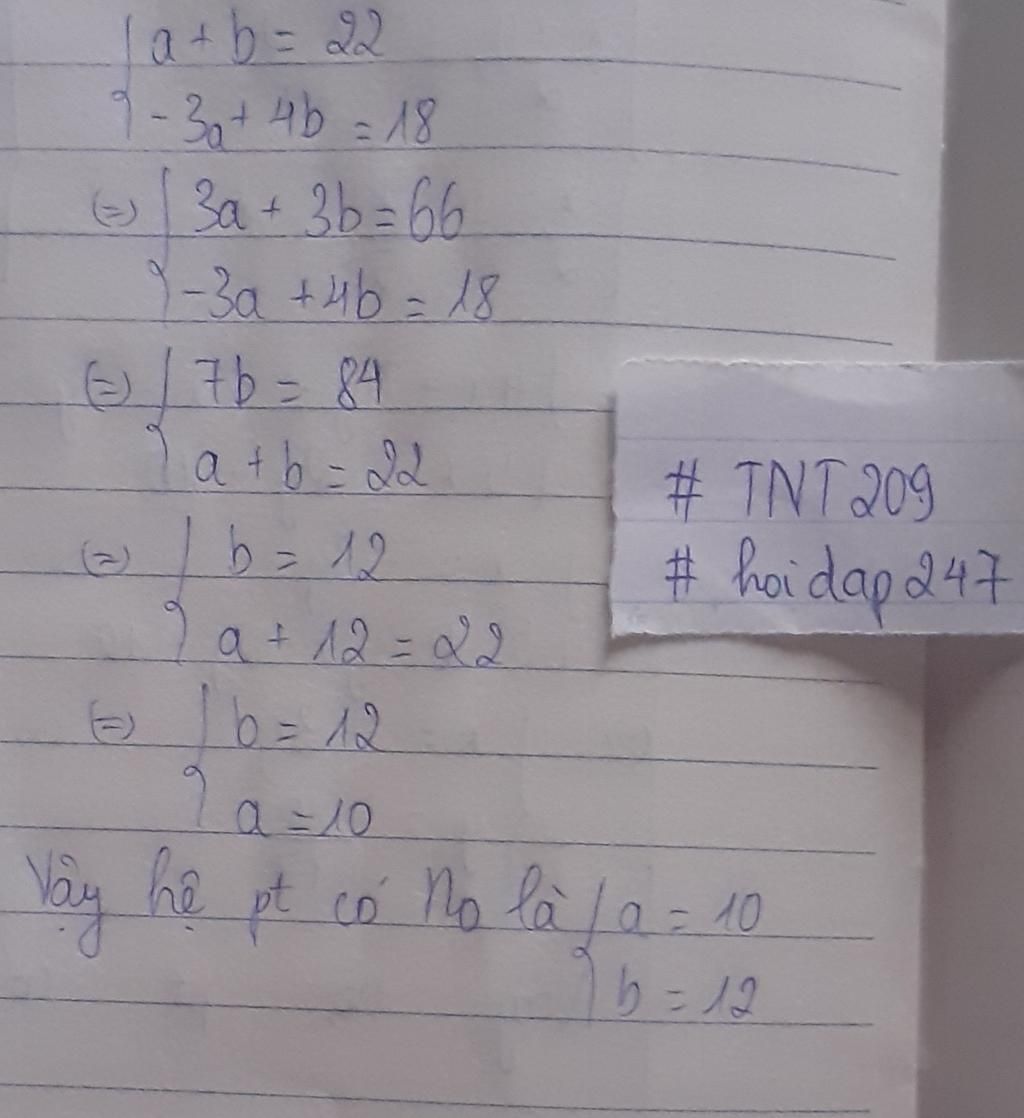 { a + b = 22
-3a + 4b = 18
(=) { 3a + 3b = 66
-3a + 4b = 18
(=) { 7b = 84
a + b = 22
(=) { b = 12
a + 12 = 22
(=) { b = 12
a = 10
Vậy hệ pt có No là { a = 10
b = 12
# TNT209
# hoidap247